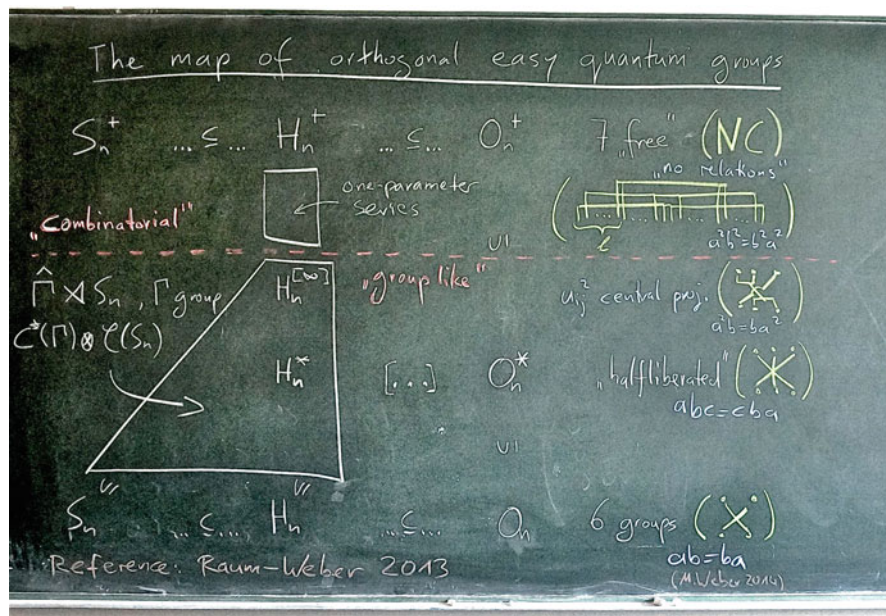 The map of orthogonal easy quantum groups
Sₙ⁺ ...⊆... Hₙ⁺ ...⊆... Oₙ⁺ 7 „free" (NC)
„no relations"
one-parameter
series
„combinatorial"
... ... ...
ℓ
a²b²=b²a²
∪ı
Γ̂ ⋈ Sₙ, Γ group
Hₙ^[∞]
„group like"
uᵢⱼ² central proj.
a²b=ba²
C*(Γ)⊗C(Sₙ)
Hₙ* [...] Oₙ* „halfliberated"
abc=cba
∪ı
Sₙ ...⊆... Hₙ ...⊆... Oₙ 6 groups
ab=ba
Reference: Raum-Weber 2013
(M.Weber 2014)